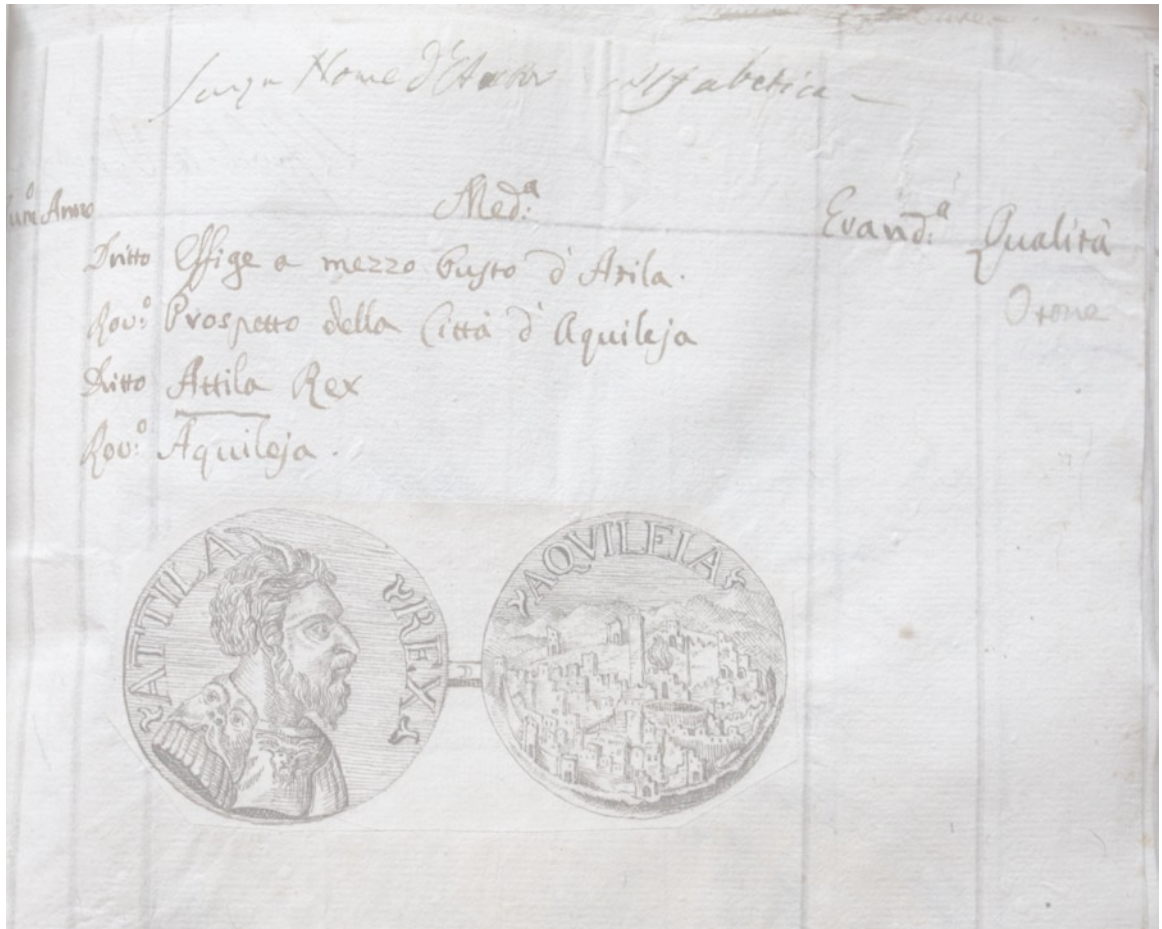 Nome d' Alfabetica
Anno Med:ª Evand:ª Qualità
Dritto Effige a mezzo busto d' Atila.
Rov:º Prospetto della Città d' Aquileja
Dritto Attila Rex
Rov:º Aquileja.
ATTILA REX
AQVILEIA